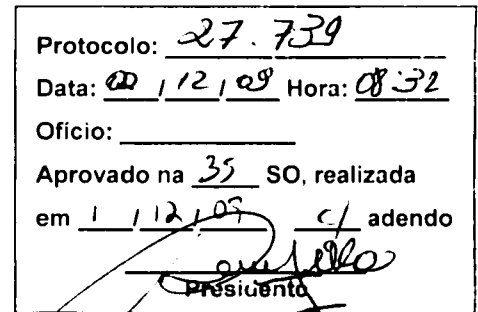 Protocolo: 27.739
Data: / 12 / 09 Hora: 08:32
Ofício:
Aprovado na 35 SO, realizada
em 1 / 12 / 09 c/ adendo
Presidente